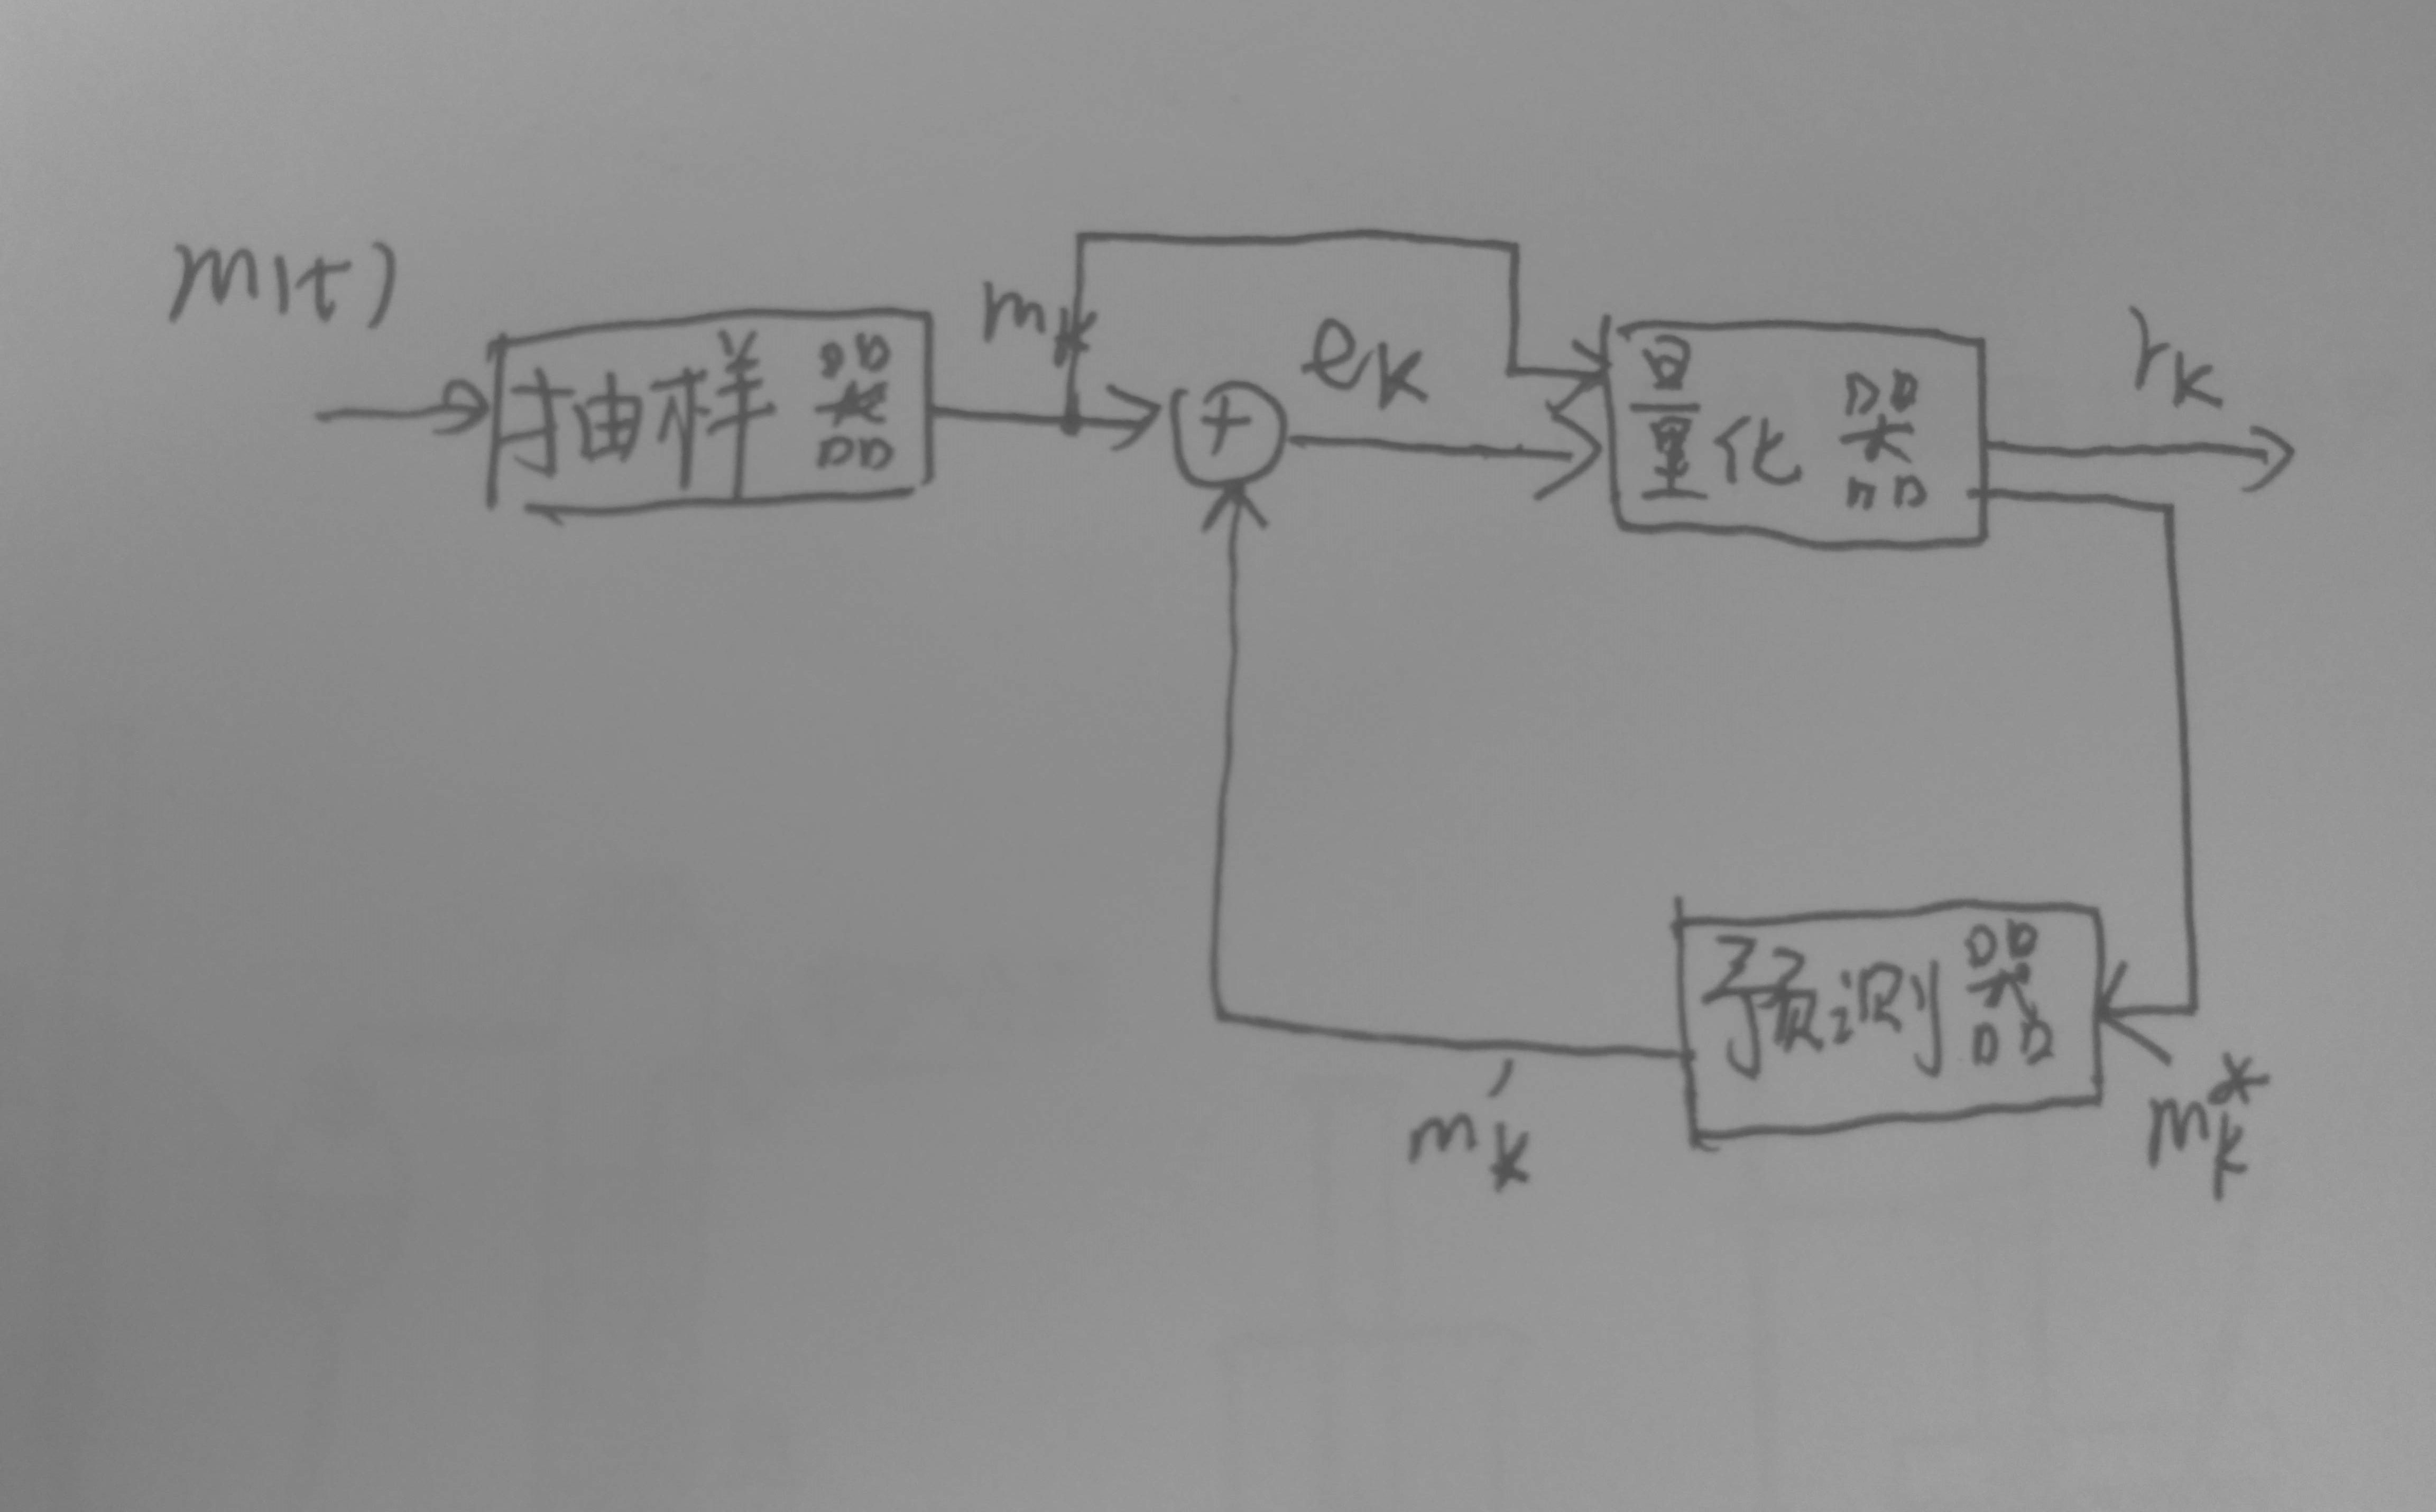 m(t)
抽样器
mk
ek
量化器
rk
预测器
m'k
m*k